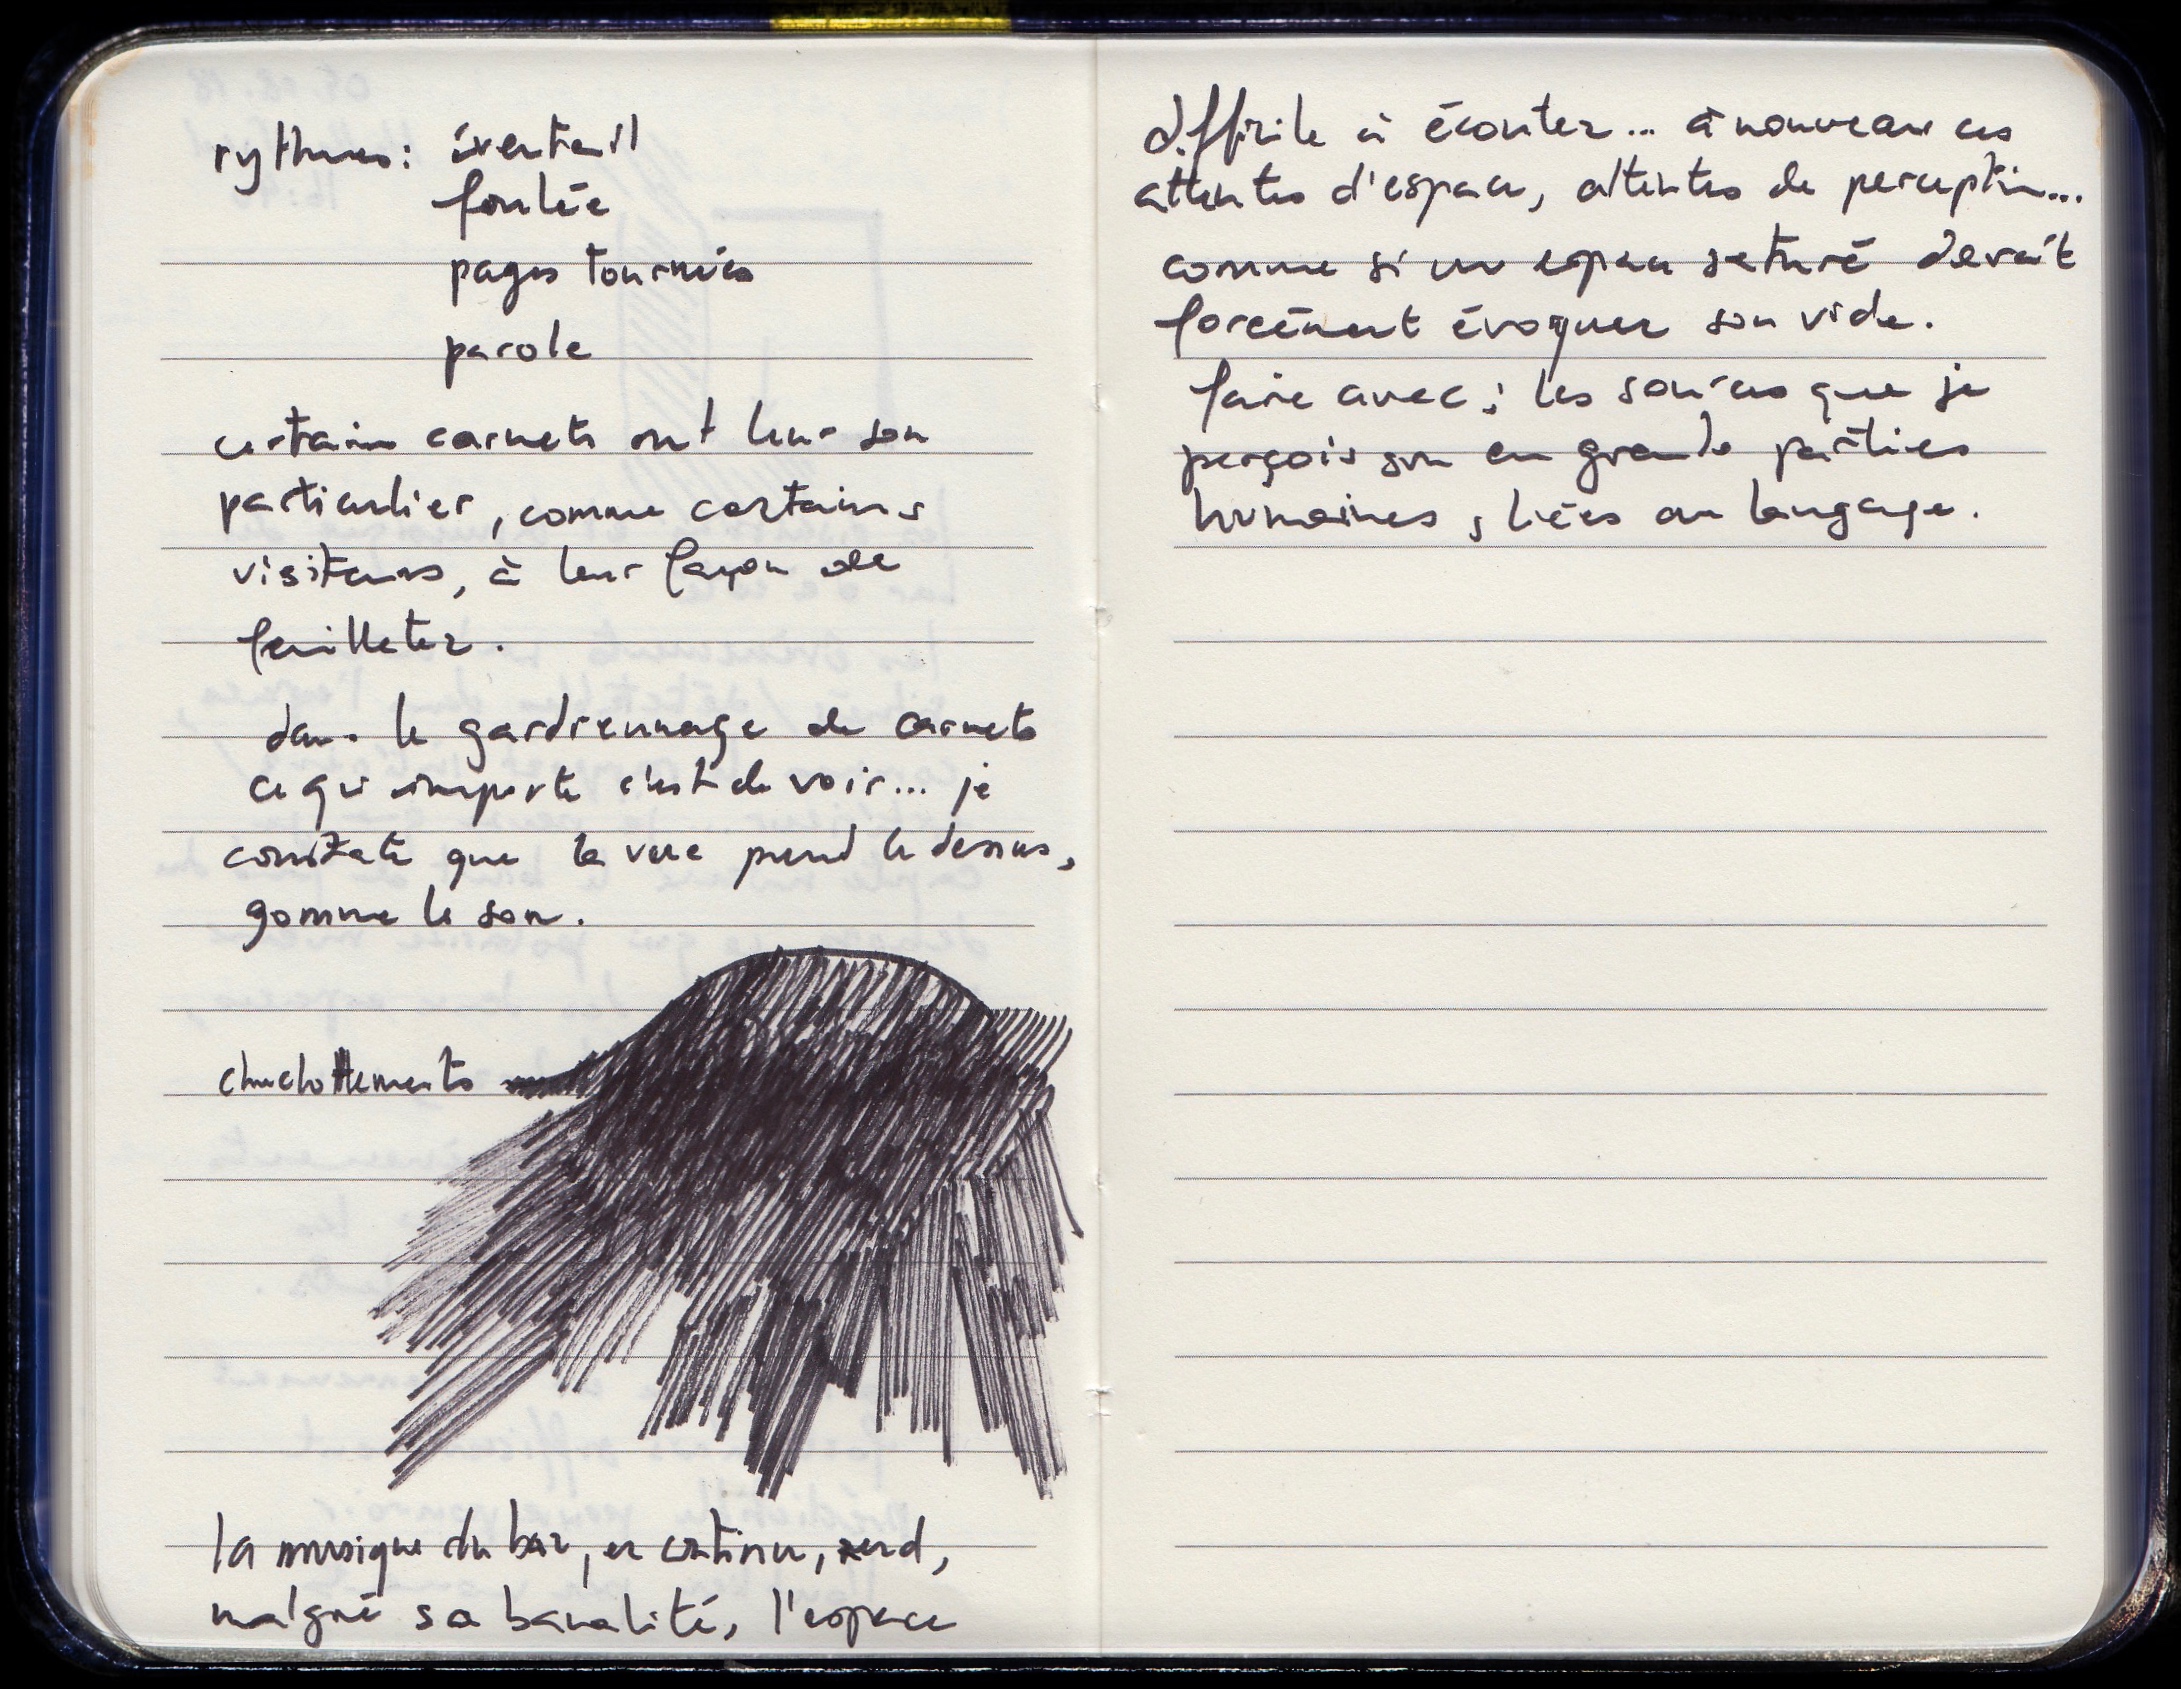 rythmes: éventail
foulée
pages tournées
parole
certains carnets ont leur son
particulier, comme certains
visiteurs, à leur façon de
feuilleter.
dans le gardiennage de carnets
ce qui importe c'est de voir... je
constate que la vue prend le dessus,
gomme le son.
chuchottements
la musique du bar, en continu, rend,
malgré sa banalité, l'espace
difficile à écouter... à nouveau ces
attentes d'espace, attentes de perception...
comme si un espace saturé devait
forcément évoquer son vide.
faire avec; les sources que je
perçois son en grande parties
humaines, liées au langage.